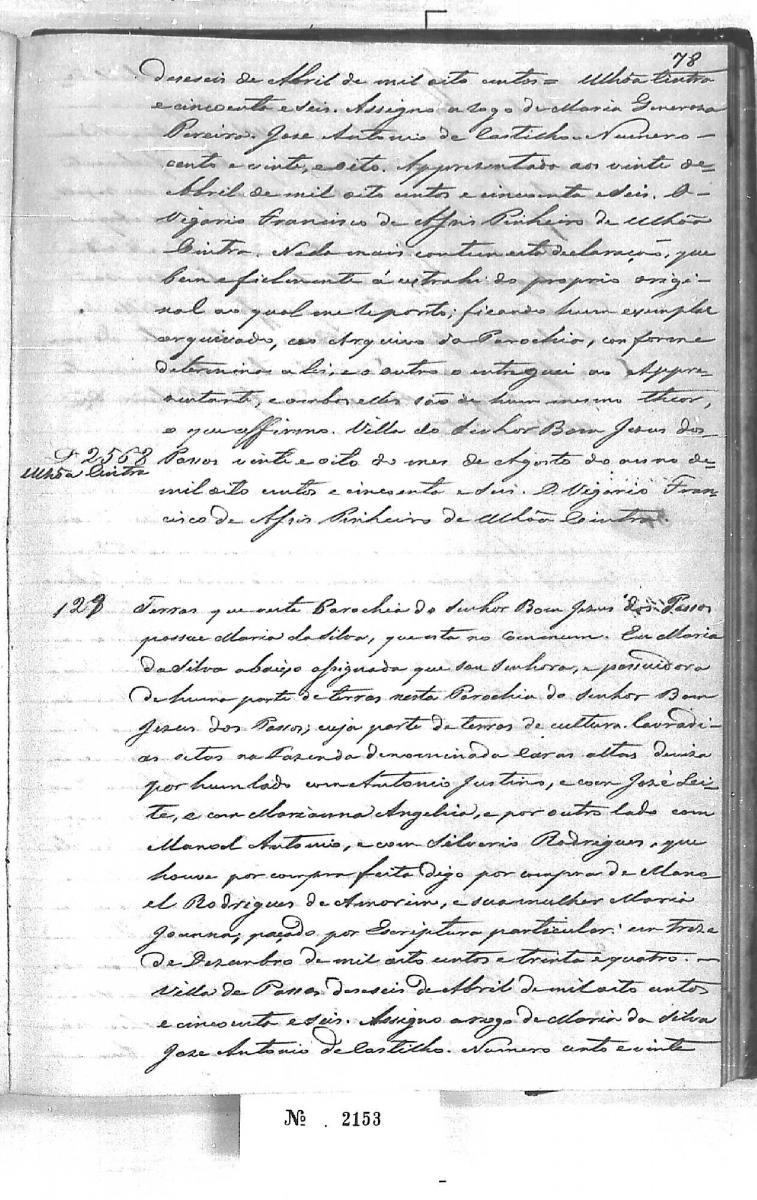 78
deseseis de Abril de mil oito centos = Ulhôa Cintra
e cincoenta e seis. Assigno a rogo de Maria Generoza
Pereira. Jose Antonio de Castilho. Numero
cento e vinte, e oito. Appresentado aos vinte de
Abril de mil oito centos e cincoenta e seis. O
Vigario Francisco de Assis Pinheiro de Ulhôa
Cintra. Nada mais contem esta declaração, que
bem e fielmente á extrahi do proprio origi-
nal ao qual me reporto; ficando hum exemplar
arquivado, no Arquivo da Parochia, conforme
determina a lei, e o outro o entreguei ao Appre-
zentante, e ambos elles são de hum mesmo theor,
o que affirmo. Villa do Senhor Bom Jezus dos
P 2568
Passos vinte e oito do mes de Agosto do anno de
Ulhôa Cintra
mil oito centos e cincoenta e seis. O Vigario Fran-
cisco de Assis Pinheiro de Ulhôa Cintra.
129
Terras que nesta Parochia do Senhor Bom Jezus dos Passos
possue Maria da Silva, que esta no commum. Eu Maria
da Silva abaixo assignada que sou senhora, e possuidora
de huma parte de terras nesta Parochia do Senhor Bom
Jezus dos Passos; cuja parte de terras de cultura lavradi-
as citos na Fazenda denominada Caras altas deviza
por hum lado com Antonio Justino, e com José Lei-
te, e com Marianna Angelica, e por outro lado com
Manoel Antonio, e com Silverio Rodrigues, que
houve por compra feita digo por compra de Mano-
el Rodrigues de Amorim, e sua mulher Maria
Joanna; paçado por Escriptura particular: em treze
de Dezembro de mil oito centos e trinta e quatro.
Villa de Passos deseseis de Abril de mil oito centos
e cincoenta e seis. Assigno a rogo de Maria da Silva
Jose Antonio de Castilho. Numero cento e vinte
Nº . 2153